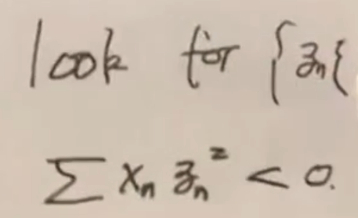 look for {zₙ}
∑ xₙ zₙ² < 0.